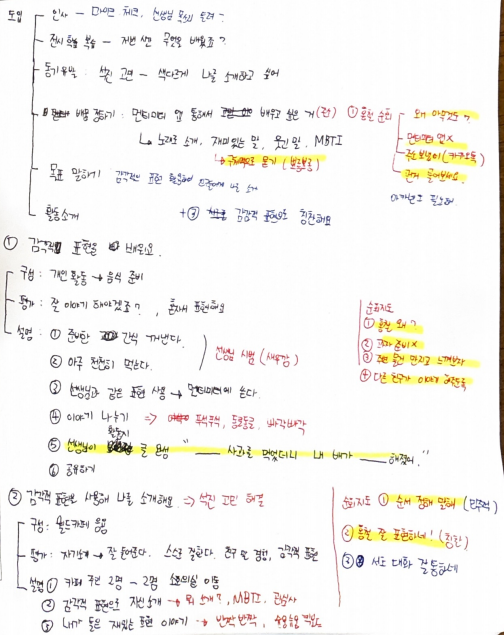 도입
인사 - 마이크 체크, 선생님 목소리 들려?
전시학습 복습 - 저번 시간 무엇을 배웠죠?
동기유발 : 석진 고민 - 색다르게 나를 소개하고 싶어
배울 정하기 : 멘티미터 앱 통해서 배우고 싶은 거
↳ 노래로 소개, 재미있는 말, 웃긴 말, MBTI
→ 구체적으로 묻기
① 통현 순회
왜 안적은거?
멘티미터 앱 X
주소 보냄이 (카카오톡)
먼저 들어보세요.
목표 말하기 감각적인 표현 활용하여 나를 소개
활동소개
+ ③ 감각적 표현으로 칭찬해요
① 감각적 표현을 배워요.
구성 : 개인 활동 → 음식 준비
평가 : 잘 이야기 해야겠죠?, 혼자서 표현해요
설명 : ① 준비한 간식 꺼낸다.
② 아주 천천히 먹는다.
선생님 시범 (새우깡)
③ 선생님과 같은 표현 사용 → 멘티미터에 쓴다.
④ 이야기 나누기 ⇒ 푸석푸석, 동글동글, 바삭바삭
활동지
⑤ 선생님이 글 완성 " ___ 사과를 먹었더니 내 배가 ___ 해졌어."
⑥ 공유하기
순회지도
① 통현 왜?
② 과자 준비 X
③ 주변 물건 만지고 느껴보자
④ 다른 친구가 이야기 하도록
② 감각적 표현을 사용해 나를 소개해요 ⇒ 석진 고민 해결
구성 : 월드카페 운영
평가 : 자기소개 → 잘 들어준다. 스스로 잘한다. 친구 말 경청, 감각적 표현
설명 ① 카페 주인 2명 - 2명 소회의실 이동
② 감각적 표현으로 자신 소개 → 뭐 소개?, MBTI, 관심사
③ 내가 들은 재밌는 표현 이야기 → 반짝 반짝,
순회지도 ① 순서 정해 말해 (민주적)
② 통현 잘 표현하네! (칭찬)
③ 서로 대화 잘 통하네